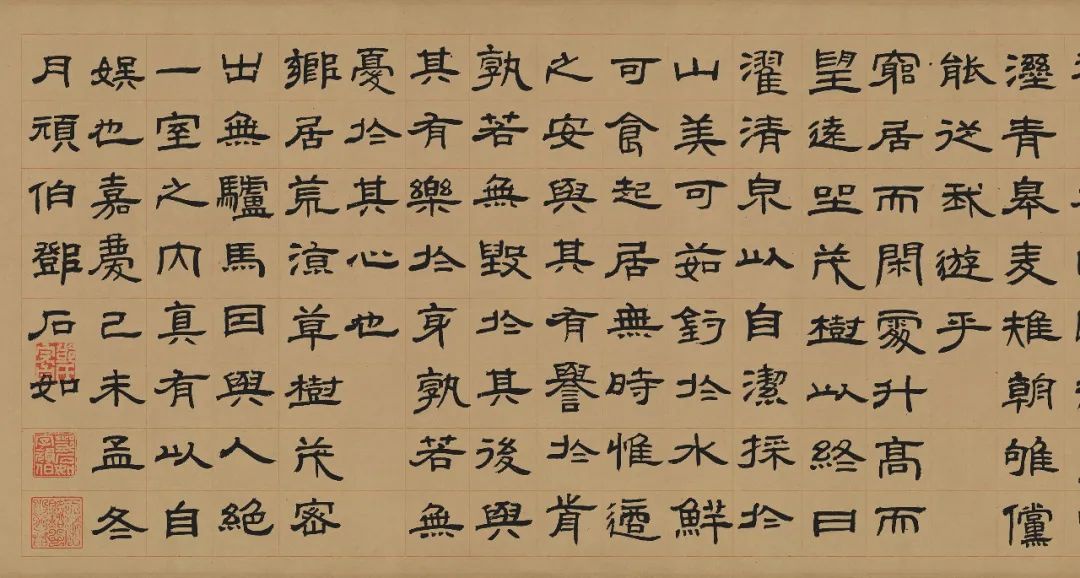 溼青皋麦雉朝雊儻
能從我遊乎
窮居而閑處升高而
望遠坐茂樹以終日
濯清泉以自潔採於
山美可茹釣於水鮮
可食起居無時惟適
之安與其有譽於前
孰若無毀於其後與
其有樂於身孰若無
憂於其心也
鄉居荒涼草樹茂密
出無驢馬因與人絕
一室之内真有以自
娛也嘉慶己未孟冬
月頑伯鄧石如